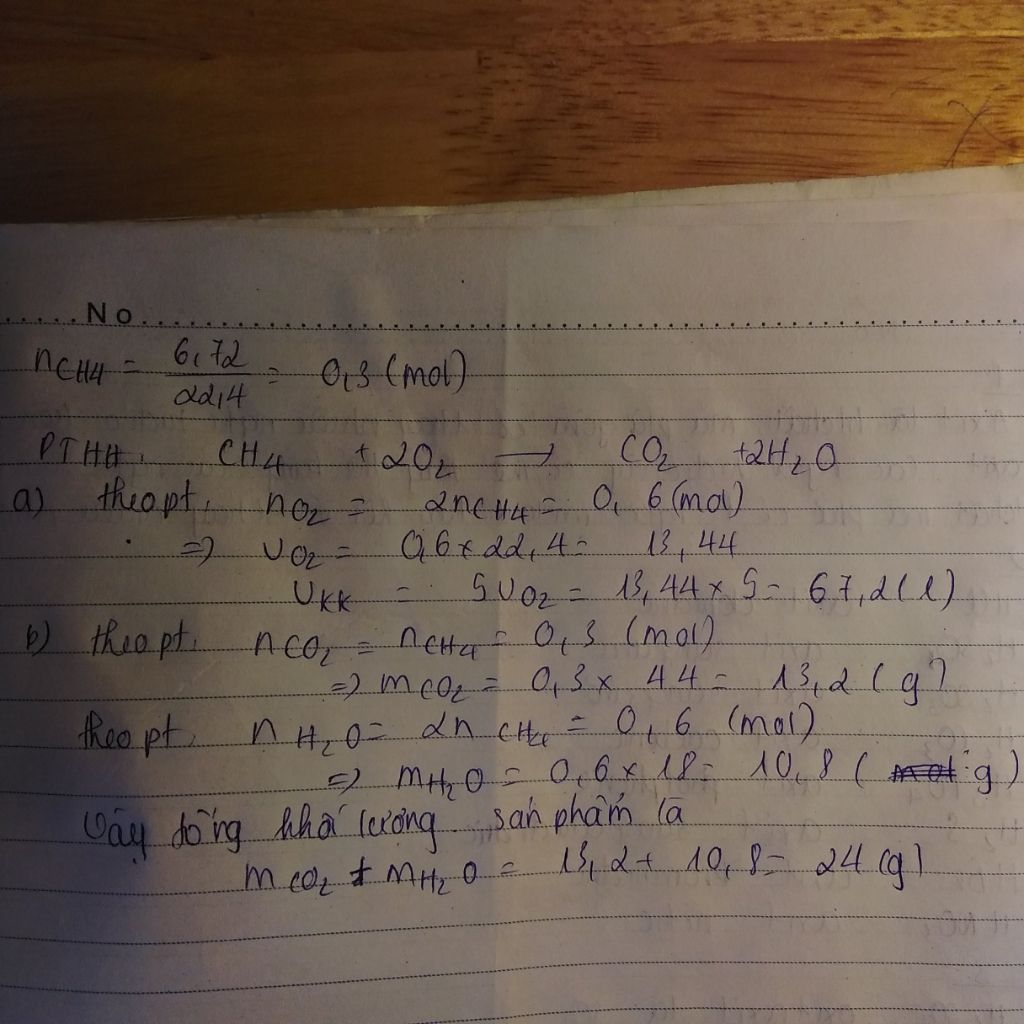 No
nCH4 = 6,72 / 22,4 = 0,3 (mol)
PTHH: CH4 + 2O2 → CO2 + 2H2O
a) theo pt: nO2 = 2nCH4 = 0,6 (mol)
=> VO2 = 0,6 x 22,4 = 13,44
VKK = 5VO2 = 13,44 x 5 = 67,2 (l)
b) theo pt: nCO2 = nCH4 = 0,3 (mol)
=> mCO2 = 0,3 x 44 = 13,2 (g)
theo pt: nH2O = 2nCH4 = 0,6 (mol)
=> mH2O = 0,6 x 18 = 10,8 (g)
Vậy tổng khối lượng sản phẩm là
mCO2 + mH2O = 13,2 + 10,8 = 24 (g)